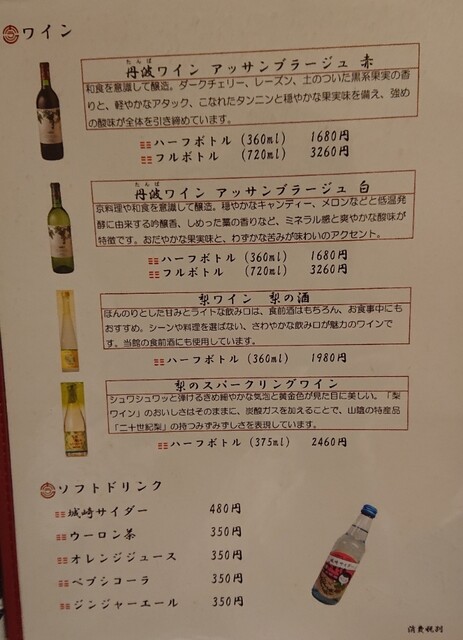 ワイン
たんば
丹波ワイン アッサンブラージュ 赤
和食を意識して醸造。ダークチェリー、レーズン、土のついた黒系果実の香
りと、軽やかなアタック、こなれたタンニンと穏やかな果実味を備え、強め
の酸味が全体を引き締めています。
ハーフボトル (360ml) 1680円
フルボトル (720ml) 3260円
たんば
丹波ワイン アッサンブラージュ 白
京料理や和食を意識して醸造。穏やかなキャンディー、メロンなどと低温発
酵に由来する吟醸香、しめった藁の香りなど、ミネラル感と爽やかな酸味が
特徴です。おだやかな果実味と、わずかな苦みが味わいのアクセント。
ハーフボトル (360ml) 1680円
フルボトル (720ml) 3260円
梨ワイン 梨の酒
ほんのりとした甘みとライトな飲み口は、食前酒はもちろん、お食事中にも
おすすめ。シーンや料理を選ばない、さわやかな飲み口が魅力のワインで
す。当館の食前酒にも使用しています。
ハーフボトル (360ml) 1980円
梨のスパークリングワイン
シュワシュワッと弾けるきめ細やかな気泡と黄金色が見た目に美しい。「梨
ワイン」のおいしさはそのままに、炭酸ガスを加えることで、山陰の特産品
「二十世紀梨」の持つみずみずしさを表現しています。
ハーフボトル (375ml) 2460円
ソフトドリンク
城崎サイダー 480円
ウーロン茶 350円
オレンジジュース 350円
ペプシコーラ 350円
ジンジャーエール 350円
消費税別